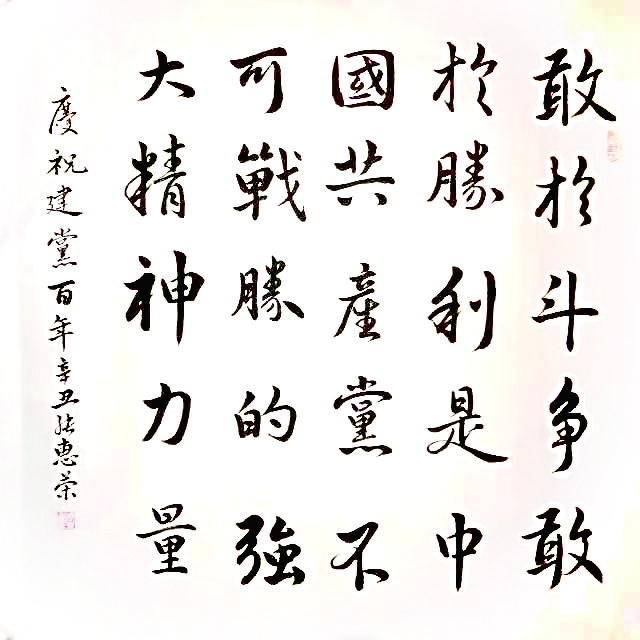 敢於斗争敢
於勝利是中
國共產黨不
可戰勝的強
大精神力量
慶祝建黨百年辛丑張惠榮